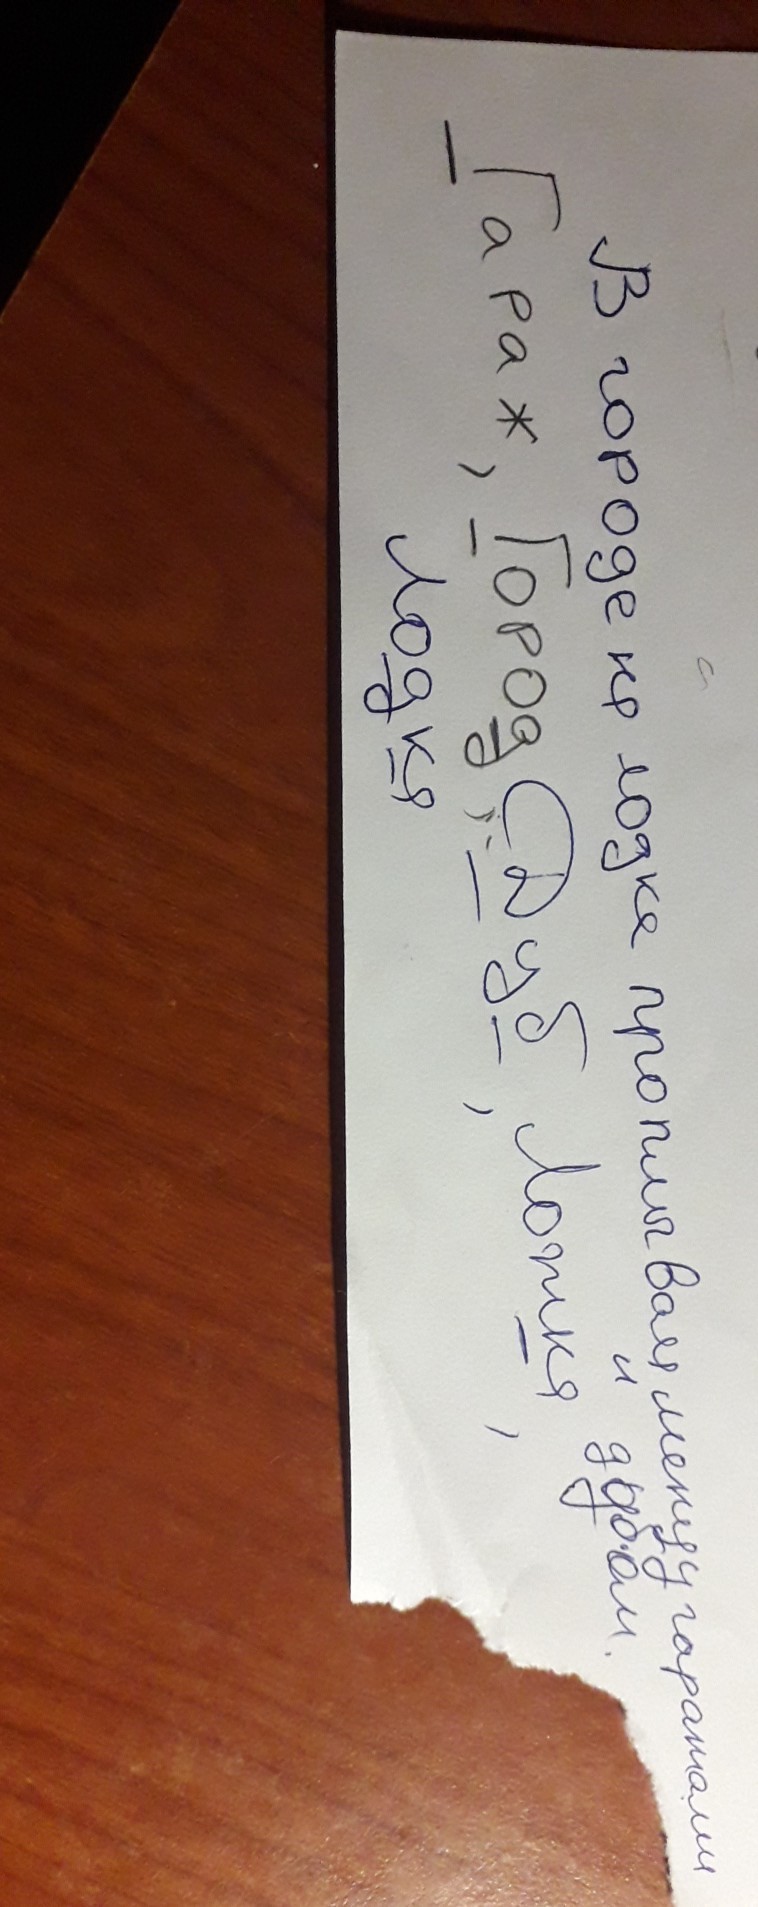 В городе на лодке проплывая между гаражами
и дубом.
Гараж, Город, Дуб, Лотка,
Лодка